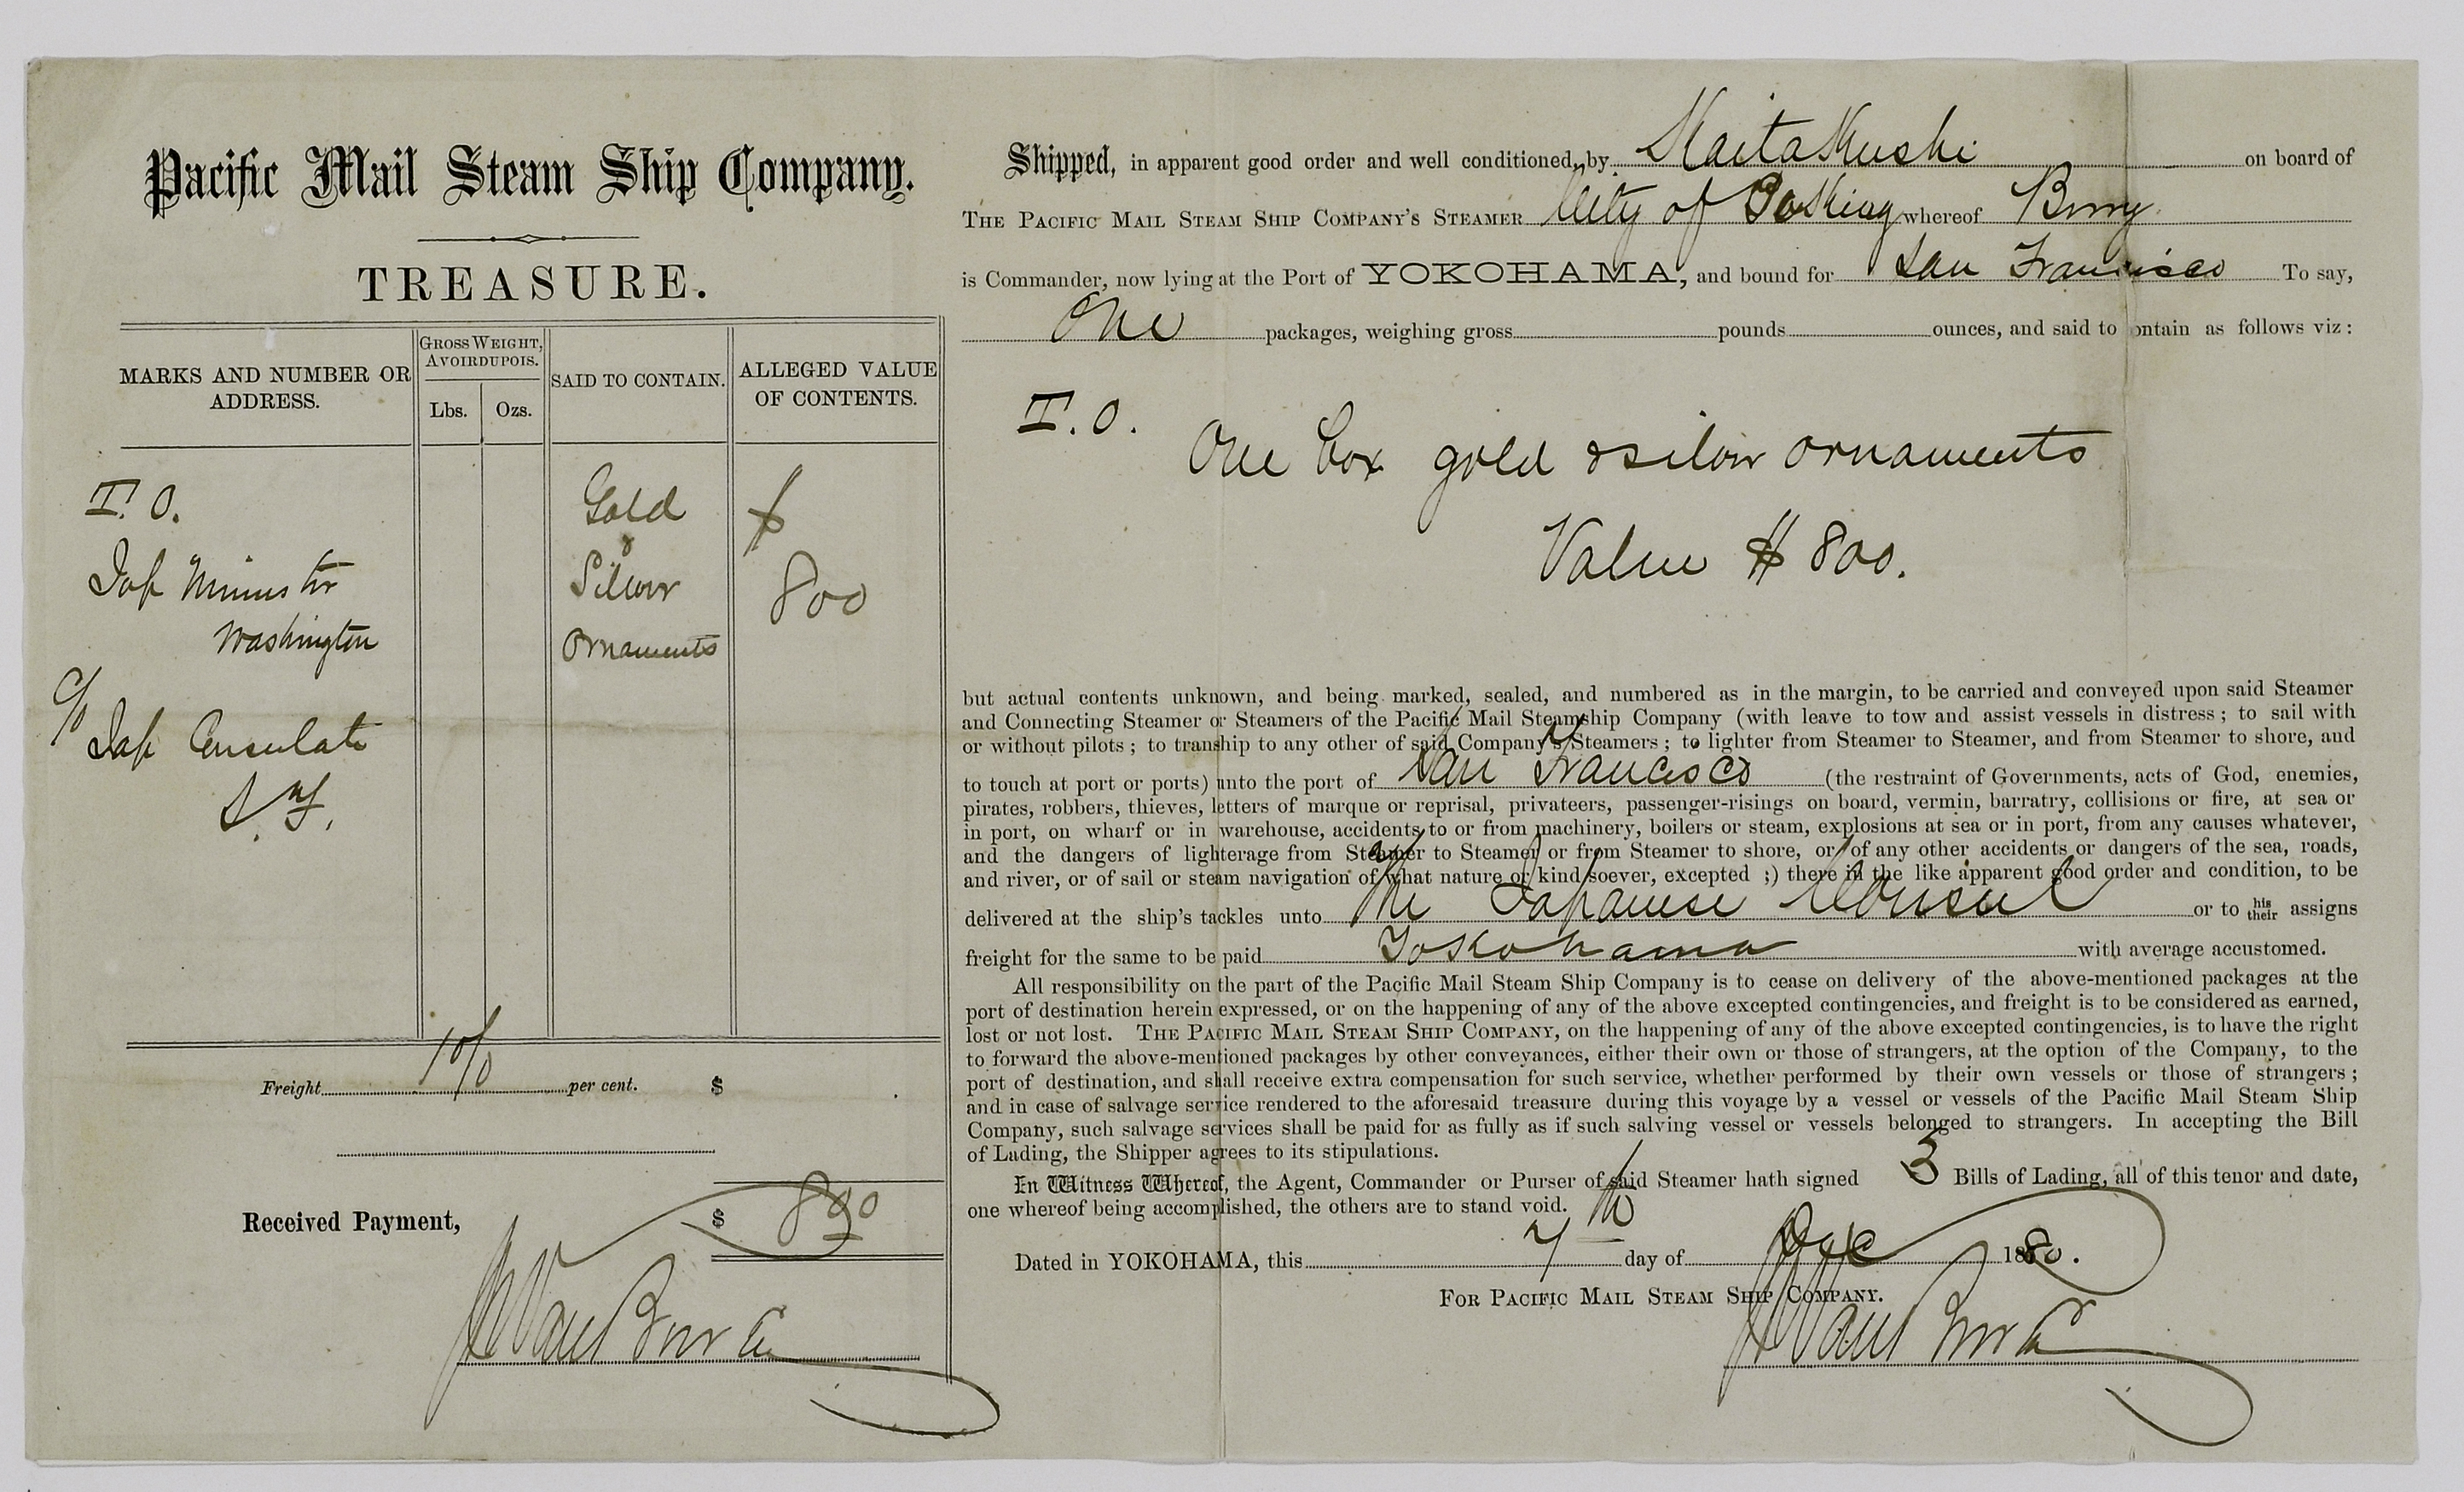 Pacific Mail Steam Ship Company.
TREASURE.
MARKS AND NUMBER OR ADDRESS.
GROSS WEIGHT, AVOIRDUPOIS.
Lbs. Ozs.
SAID TO CONTAIN.
ALLEGED VALUE OF CONTENTS.
T.O.
Jap Minister
Washington
c/o
Jap Consulate
S.F.
Gold
&
Silver
Ornaments
$
800
Freight 1 0/0 per cent. $
Received Payment, $ 8 00
Shipped, in apparent good order and well conditioned, by Kaitakushi on board of
THE PACIFIC MAIL STEAM SHIP COMPANY'S STEAMER City of Peking whereof Berry
is Commander, now lying at the Port of YOKOHAMA, and bound for San Francisco To say,
One packages, weighing gross pounds ounces, and said to contain as follows viz:
T.O.
One box gold & silver ornaments
Value $ 800.
but actual contents unknown, and being marked, sealed, and numbered as in the margin, to be carried and conveyed upon said Steamer
and Connecting Steamer or Steamers of the Pacific Mail Steamship Company (with leave to tow and assist vessels in distress; to sail with
or without pilots; to tranship to any other of said Company's Steamers; to lighter from Steamer to Steamer, and from Steamer to shore, and
to touch at port or ports) unto the port of San Francisco (the restraint of Governments, acts of God, enemies,
pirates, robbers, thieves, letters of marque or reprisal, privateers, passenger-risings on board, vermin, barratry, collisions or fire, at sea or
in port, on wharf or in warehouse, accidents to or from machinery, boilers or steam, explosions at sea or in port, from any causes whatever,
and the dangers of lighterage from Steamer to Steamer or from Steamer to shore, or of any other accidents or dangers of the sea, roads,
and river, or of sail or steam navigation of what nature or kind soever, excepted ;) there in the like apparent good order and condition, to be
delivered at the ship's tackles unto The Japanese Consul or to his their assigns
freight for the same to be paid Yokohama with average accustomed.
All responsibility on the part of the Pacific Mail Steam Ship Company is to cease on delivery of the above-mentioned packages at the
port of destination herein expressed, or on the happening of any of the above excepted contingencies, and freight is to be considered as earned,
lost or not lost. THE PACIFIC MAIL STEAM SHIP COMPANY, on the happening of any of the above excepted contingencies, is to have the right
to forward the above-mentioned packages by other conveyances, either their own or those of strangers, at the option of the Company, to the
port of destination, and shall receive extra compensation for such service, whether performed by their own vessels or those of strangers;
and in case of salvage service rendered to the aforesaid treasure during this voyage by a vessel or vessels of the Pacific Mail Steam Ship
Company, such salvage services shall be paid for as fully as if such salving vessel or vessels belonged to strangers. In accepting the Bill
of Lading, the Shipper agrees to its stipulations.
In Witness Whereof, the Agent, Commander or Purser of said Steamer hath signed 3 Bills of Lading, all of this tenor and date,
one whereof being accomplished, the others are to stand void.
Dated in YOKOHAMA, this 7th day of Dec 1880.
FOR PACIFIC MAIL STEAM SHIP COMPANY.